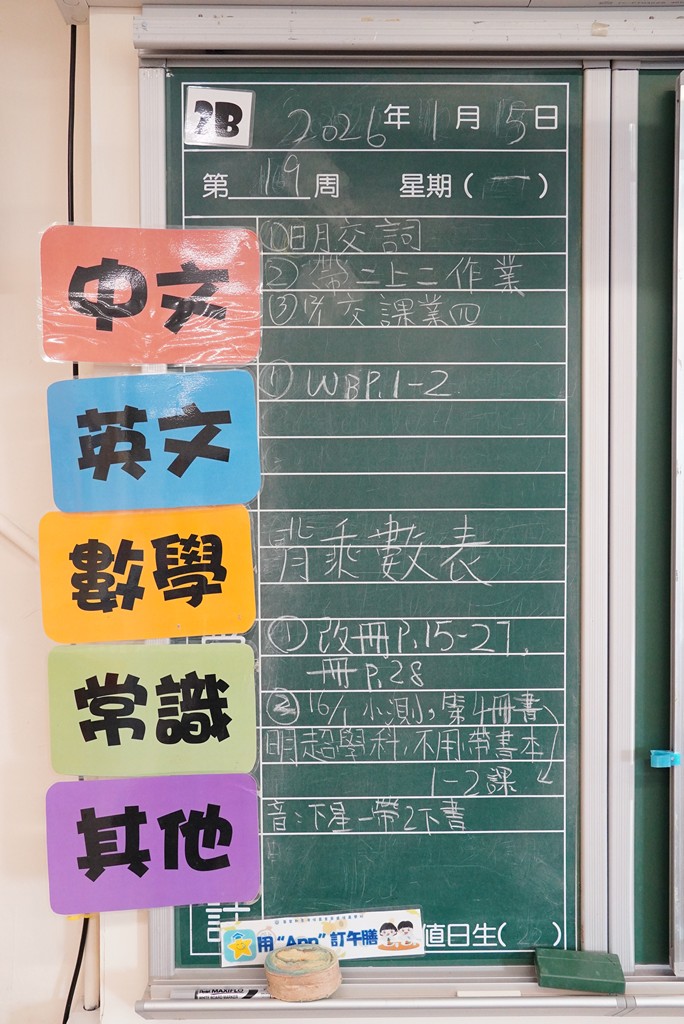 2B 2026年1月15日
第19周 星期(一)
中文
①明交詞
②帶二上二作業
③交課業四
英文
① WB P.1-2
數學
背乘數表
常識
① 改冊P.15-27,
冊 P.28
② 16/1 小測，第4冊書
1-2課
明超學科，不用帶書本
其他
音：下星一帶2下書
用“App”訂午膳
值日生( )